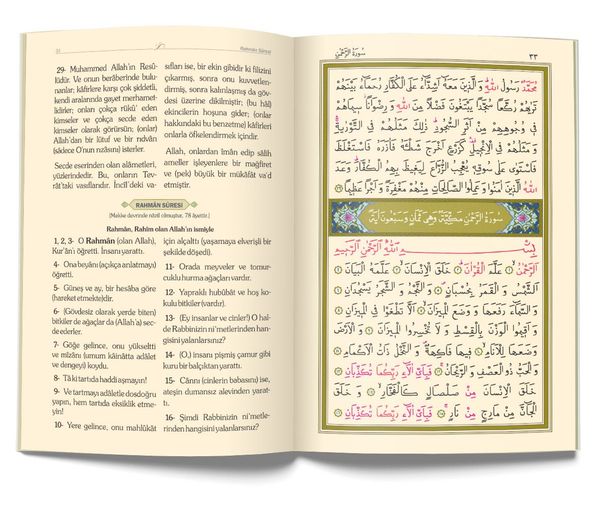 Rahmân Sûresi
29- Muhammed Allah'ın Resû-
lüdür. Ve onun berâberinde bulu-
nanlar; kâfirlere karşı çok şiddetli,
kendi aralarında gayet merhamet-
lidirler; onları çokça rükû' eden
kimseler ve çokça secde eden
kimseler olarak görürsün; (onlar)
Allah'dan bir lütuf ve bir rıdvân
(sâdece O'nun rızâsını) isterler.
Secde eserinden olan alâmetleri,
yüzlerindedir. Bu, onların Tev-
rât'taki vasıflarıdır. İncîl'deki va-
sıfları ise, bir ekin gibidir ki filizini
çıkarmış, sonra onu kuvvetlen-
dirmiş, sonra kalınlaşmış da göv-
desi üzerine dikilmiştir; (bu hâl)
ekincilerin hoşuna gider; (onlar
hakkındaki bu benzetme) kâfirleri
onlarla öfkelendirmek içindir.
Allah, onlardan îmân edip sâlih
ameller işleyenlere bir mağfiret
ve (pek) büyük bir mükâfât va'd
etmiştir.
RAHMÂN SÛRESİ
(Mekke devrinde nâzil olmuştur. 78 âyettir.)
Rahmân, Rahîm olan Allah'ın ismiyle
1, 2, 3- O Rahmân (olan Allah),
Kur'ân'ı öğretti. İnsanı yarattı.
4- Ona beyânı (açıkça anlatmayı)
öğretti.
5- Güneş ve ay, bir hesâba göre
(hareket etmekte)dir.
6- (Gövdesiz olarak yerde biten)
bitkiler de ağaçlar da (Allah'a) sec-
de ederler.
7- Göğe gelince, onu yükseltti
ve mîzânı (umum kâinâtta adâlet
ve dengeyi) koydu.
8- Tâ ki tartıda haddi aşmayın!
9- Ve tartmayı adâletle dosdoğru
yapın, hem tartıda eksiklik etme-
yin!
10- Yere gelince, onu mahlûkāt
için alçalttı (yaşamaya elverişli bir
şekilde döşedi).
11- Orada meyveler ve tomur-
cuklu hurma ağaçları vardır.
12- Yapraklı hubûbât ve hoş ko-
kulu bitkiler (vardır).
13- (Ey insanlar ve cinler!) O hal-
de Rabbinizin ni'metlerinden han-
gisini yalanlarsınız?
14- (O,) insanı pişmiş çamur gibi
kuru bir balçıktan yarattı.
15- Cânnı (cinlerin babasını) ise,
ateşin dumansız alevinden yarat-
tı.
16- Şimdi Rabbinizin ni'metle-
rinden hangisini yalanlarsınız?
سُورَةُ الرَّحْمٰنِ
٣٣
مُحَمَّدٌ رَسُولُ اللّٰهِ وَالَّذ۪ينَ مَعَهُٓ اَشِدَّٓاءُ عَلَى الْكُفَّارِ رُحَمَٓاءُ بَيْنَهُمْ
تَرٰيهُمْ رُكَّعًا سُجَّدًا يَبْتَغُونَ فَضْلًا مِنَ اللّٰهِ وَرِضْوَانًا س۪يمَاهُمْ
ف۪ي وُجُوهِهِمْ مِنْ اَثَرِ السُّجُودِ ذٰلِكَ مَثَلُهُمْ فِي التَّوْرٰيةِ
وَمَثَلُهُمْ فِي الْاِنْج۪يلِ كَزَرْعٍ اَخْرَجَ شَطْـَٔهُ فَاٰزَرَهُ فَاسْتَغْلَظَ
فَاسْتَوٰى عَلٰى سُوقِه۪ يُعْجِبُ الزُّرَّاعَ لِيَغ۪يظَ بِهِمُ الْكُفَّارَ وَعَدَ
اللّٰهُ الَّذ۪ينَ اٰمَنُوا وَعَمِلُوا الصَّالِحَاتِ مِنْهُمْ مَغْفِرَةً وَاَجْرًا عَظ۪يمًا ٢٩
سُورَةُ الرَّحْمٰنِ مَكِّيَّةٌ وَهِيَ ثَمَانٌ وَسَبْعُونَ اٰيَةً
بِسْمِ اللّٰهِ الرَّحْمٰنِ الرَّح۪يمِ
اَلرَّحْمٰنُ ١ عَلَّمَ الْقُرْاٰنَ ٢ خَلَقَ الْاِنْسَانَ ٣ عَلَّمَهُ الْبَيَانَ ٤
اَلشَّمْسُ وَالْقَمَرُ بِحُسْبَانٍ ٥ وَالنَّجْمُ وَالشَّجَرُ يَسْجُدَانِ ٦
وَالسَّمَٓاءَ رَفَعَهَا وَوَضَعَ الْم۪يزَانَ ٧ اَلَّا تَطْغَوْا فِي الْم۪يزَانِ ٨
وَاَق۪يمُوا الْوَزْنَ بِالْقِسْطِ وَلَا تُخْسِرُوا الْم۪يزَانَ ٩ وَالْاَرْضَ
وَضَعَهَا لِلْاَنَامِ ١٠ ف۪يهَا فَاكِهَةٌ وَالنَّخْلُ ذَاتُ الْاَكْمَامِ ١١
وَالْحَبُّ ذُو الْعَصْفِ وَالرَّيْحَانُ ١٢ فَبِاَيِّ اٰلَٓاءِ رَبِّكُمَا تُكَذِّبَانِ ١٣
خَلَقَ الْاِنْسَانَ مِنْ صَلْصَالٍ كَالْفَخَّارِ ١٤ وَخَلَقَ
الْجَٓانَّ مِنْ مَارِجٍ مِنْ نَارٍ ١٥ فَبِاَيِّ اٰلَٓاءِ رَبِّكُمَا تُكَذِّبَانِ ١٦